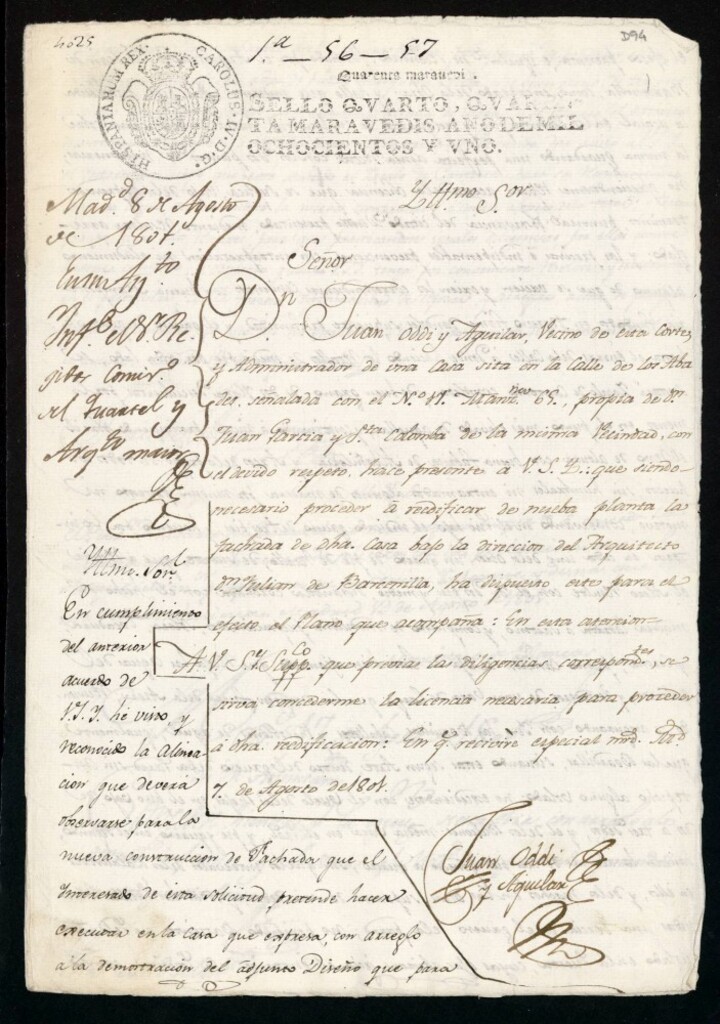 4025
D94
1.ª - 56 - 57
HISPANIARUM REX. CAROLUS IV D. G.
Quarenta maravedi.
SELLO QVARTO, QVAR
TA MARAVEDIS, AÑO DE MIL
OCHOCIENTOS Y VNO.
Yttmo. Sor.
Mad.d 8 de Agosto
de 1801.
En su Ay.to
Inf.e el S.r Re
gidor Comis.o
del Quartel y
Arq.to maior
Señor
Dn. Juan Oddi y Aguilar, Vecino de esta Corte,
y Administrador de una casa sita en la Calle de los Aba
des, señalada con el N.o 17. Manz.nea 65., propia de Dn.
Juan Garcia y S.ta Colomba de la misma Vecindad, con
el devido respeto, hace presente a V. S. Y.: que siendo
necesario proceder à redificar de nueba planta la
fachada de dha. Casa bajo la direccion del Arquitecto
Dn. Julian de Baremila, ha dispuesto este para el
efecto el Plano que acompaña: En esta atencion
A V. S. Y. Supp.co que previas las diligencias correspond.tes, se
sirva concederme la licencia necesaria para proceder
a dha. redificacion: En q.e recivire especial mrd. Mad.d
7. de Agosto de 1801.
Juan Oddi
y Aguilar
Yttmo. Sor.
En cumplimiento
del anterior
acuerdo de
V. S. Y. he visto, y
reconocido la Alinea
cion que deverá
observarse para la
nueva construccion de Fachada que el
Interesado de esta solicitud, pretende hacer
executar en la Casa que expresa, con arreglo
a la demostracion del adjunto Diseño que para